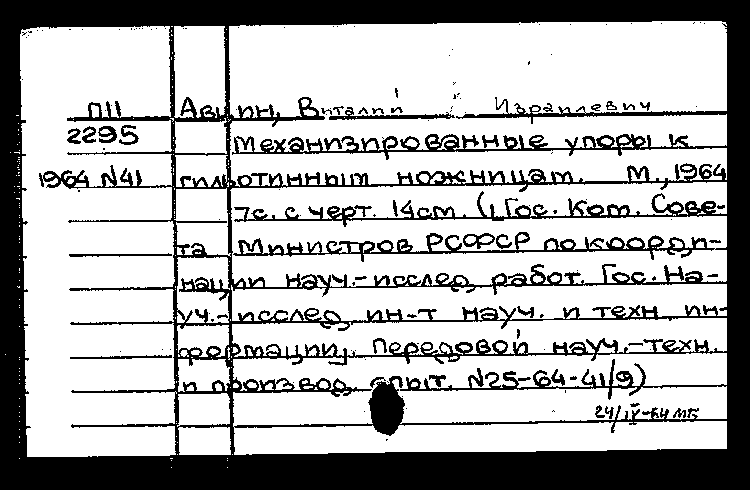 П11 Авцин, Виталий Израилевич
2295 Механизированные упоры к
1964 N41 гильотинным ножницам. М., 1964
7с. с черт. 14см. (Гос. Ком. Сове-
та Министров РСФСР по коорди-
нации науч.-исслед. работ. Гос. На-
уч.-исслед. ин-т науч. и техн. ин-
формации). Передовой науч.-техн.
и производ. опыт. N25-64-41/9)
24/IV-64 МБ